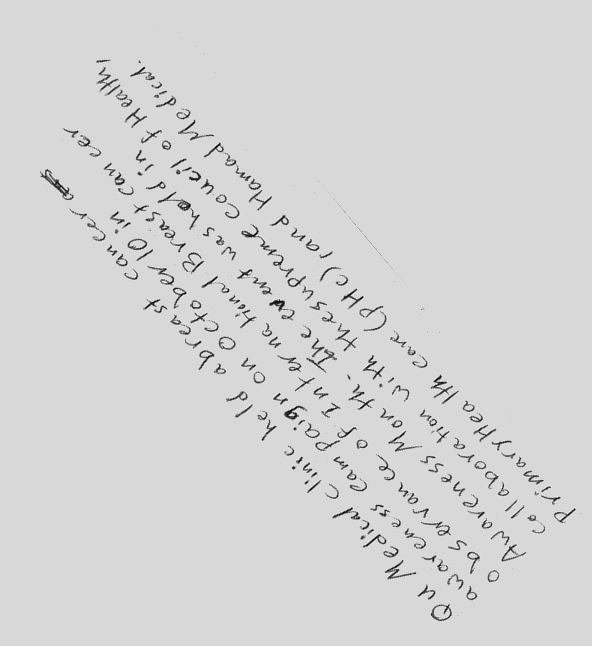 QU Medical clinic held abreast cancer
awareness campaign on October 10 in
observance of International Breast cancer
Awareness Month. The event was held in
collaboration with thesupreme Coucil of Health,
PrimaryHealth care (PHC) rand Hamad Medical.